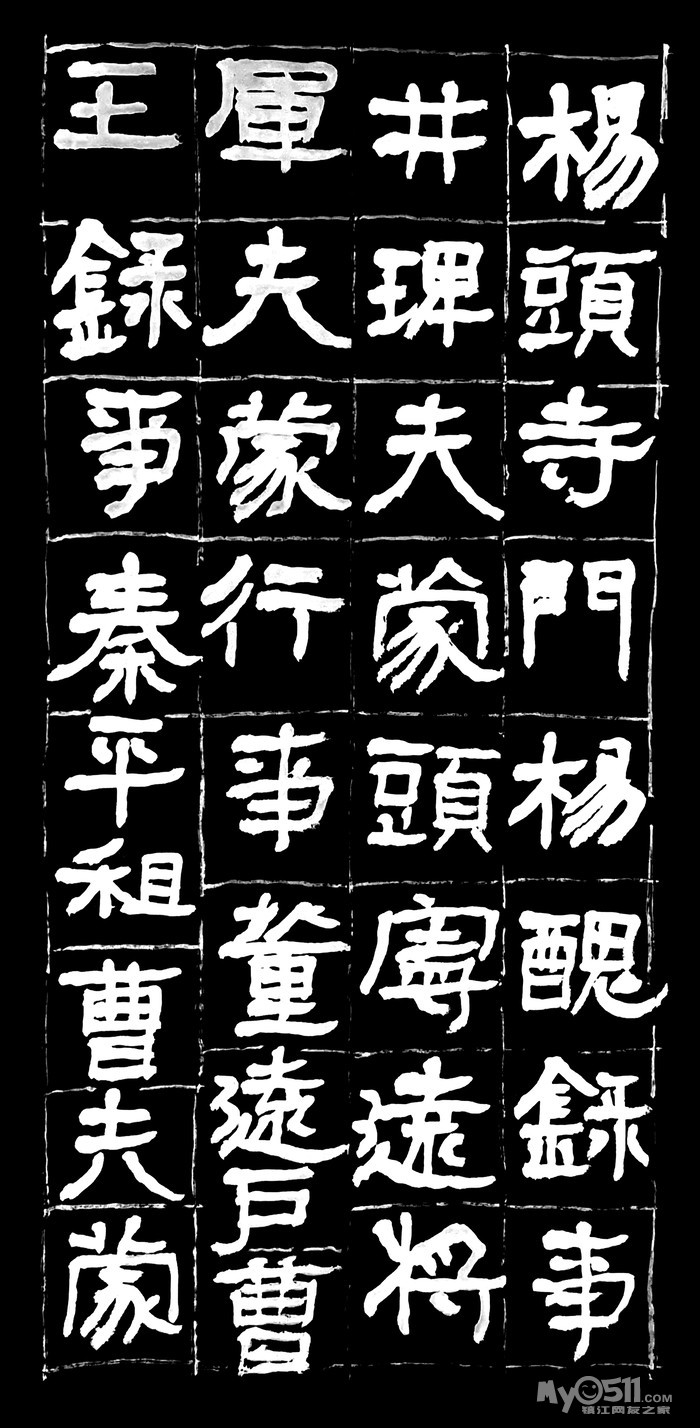 楊頭寺門楊醜錄事
井琕夫蒙頭寧遠將
軍夫蒙行事董遠戶曹
王錄事秦平祖曹夫蒙
My0511.COM
镇江网友之家